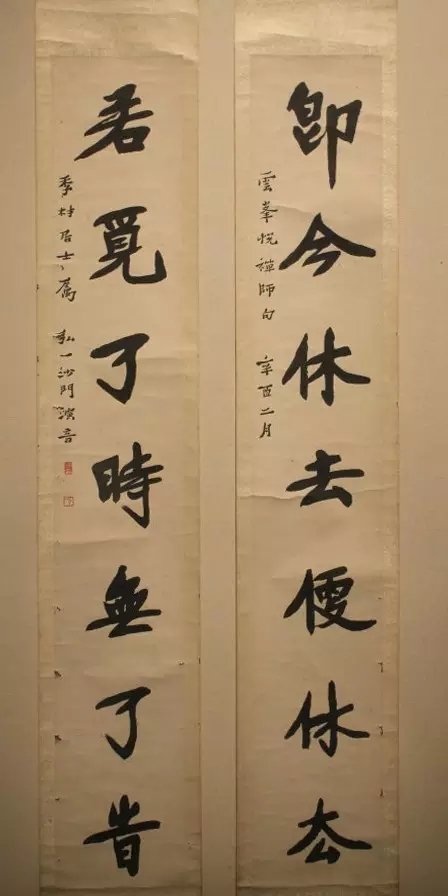 即今休去便休厺
雲峯悅禪師句 辛酉二月
若覓了時無了旹
季居士屬 弘一沙門演音